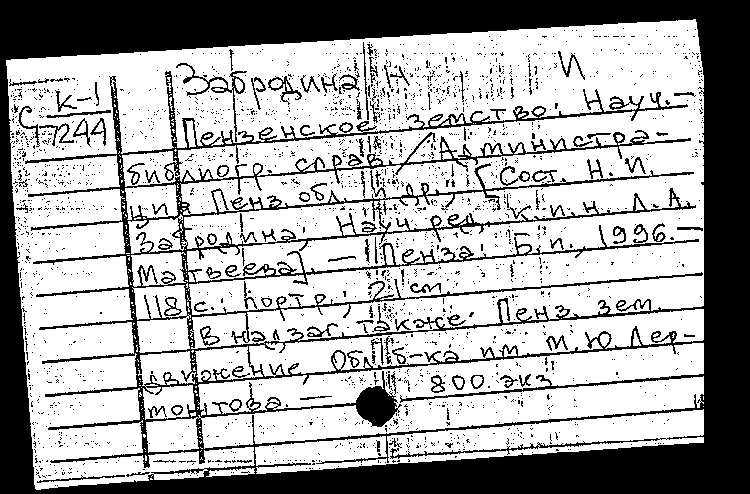 Забродина Н И
К-1
С 17244
Пензенское земство: Науч.-
библиогр. справ. / Администра-
ция Пенз. обл. и др.; [Сост. Н. И.
Забродина; Науч. ред. к.п.н. Л. А.
Матвеева]. — Пенза: Б.и., 1996. —
118 с.: портр.; 21 cm
В надзаг. также: Пенз. зем.
движение, Обл. б-ка им. М. Ю. Лер-
монтова. — 800 экз